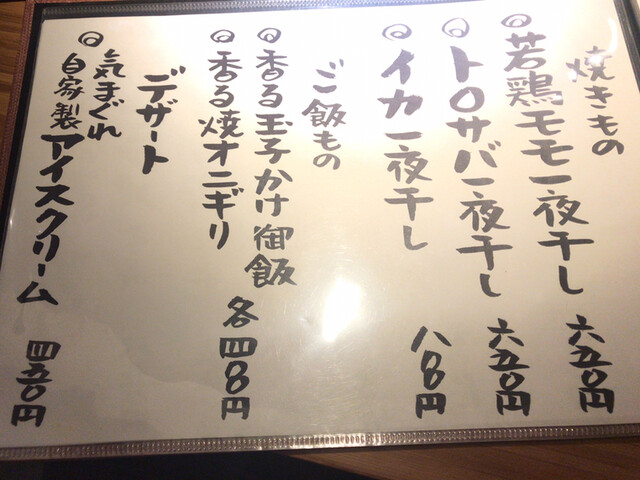 焼きもの
◎若鶏モモ一夜干し 六五〇円
◎トロサバ一夜干し 六五〇円
◎イカ一夜干し 八〇〇円
ご飯もの
◎香る玉子かけ御飯
◎香る焼オニギリ 各四〇〇円
デザート
気まぐれ
◎自家製アイスクリーム 四五〇円